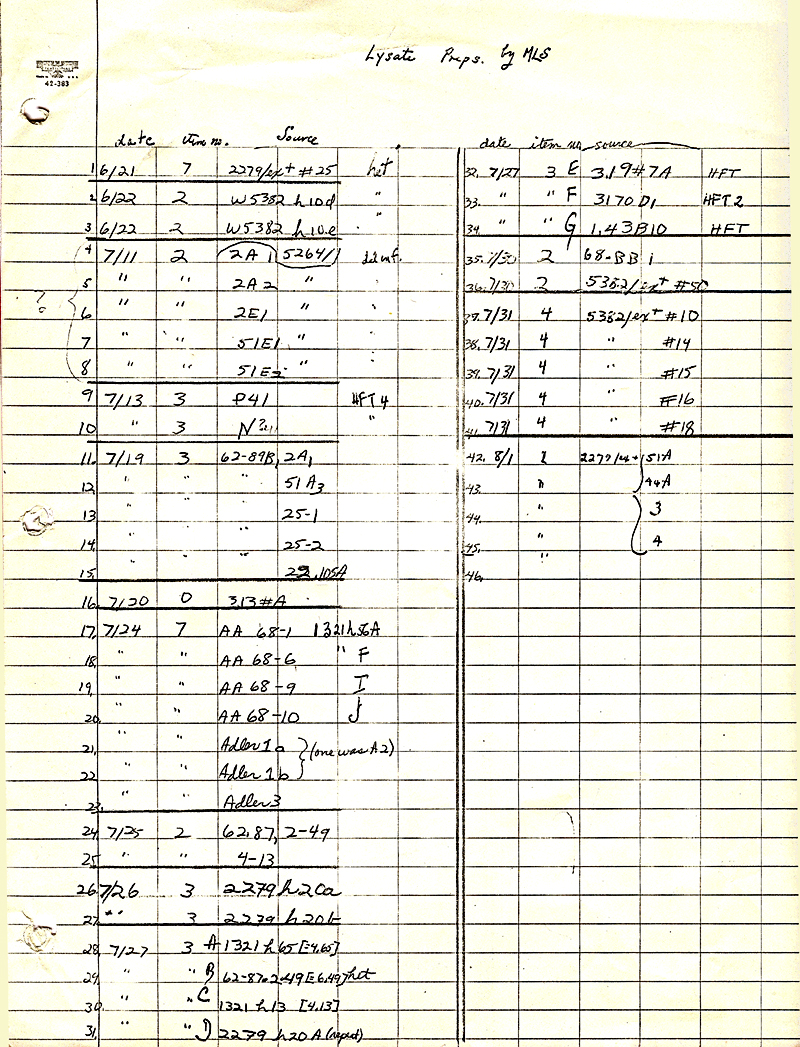 Lysate Preps. by MLS
42-383
date item no. Source
1 6/21 7 2279/ex+ #25 het
2 6/22 2 W5382 h10d "
3 6/22 2 W5382 h10e "
4 7/11 2 2A1 5264/1
5 " " 2A2 "
? 6 " " 2E1 "
7 " " 51E1 "
8 " " 51E2 "
9 7/13 3 P41 HFT4
10 " 3 "
11. 7/19 3 62-89B, 2A1
12 " " " 51A3
13 " " " 25-1
14. " " " 25-2
15. 22.105A
16. 7/20 0 313#A
17. 7/24 7 AA 68-1 1321h56A
18. " " AA 68-6 " F
19. " " AA 68-9 I
20. " " AA 68-10 J
21. " " Adler 1a (one was A2)
22 " " Adler 1b
23. " " Adler 3
24 7/25 2 62.87, 2-49
25 " " 4-13
26 7/26 3 2279 h20a
27. " 3 2279 h20b
28. 7/27 3 A 1321 h65 [-4.65]
29. " " B 62-87a2-49[E6.49] het
30. " " C 1321 h13 [4.13]
31. " " D 2279 h20A (repeat)
date item no. source
32. 7/27 3 E 319#7A HFT
33. " " F 3170D1 HFT2
34. " G 1,43B10 HFT
35. 7/30 2 68-BB1
36. 7/30 2 5382/ex+ #50
37. 7/31 4 5382/ex+ #10
38. 7/31 4 " #14
39. 7/31 4 " #15
40. 7/31 4 " #16
41. 7/31 4 " #18
42. 8/1 1 51A
43. " 44A
44. " 3
45. " 4
46. "